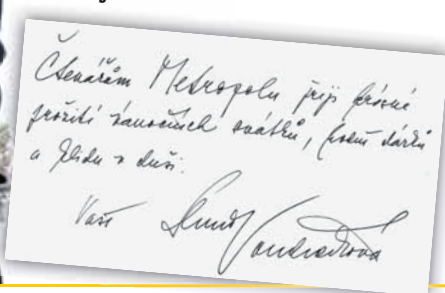 Čtenářům Metropolu přeji krásné
prožití vánočních svátků, hodně dárků
a klidu v duši.
Vaše Hana Vondráčková